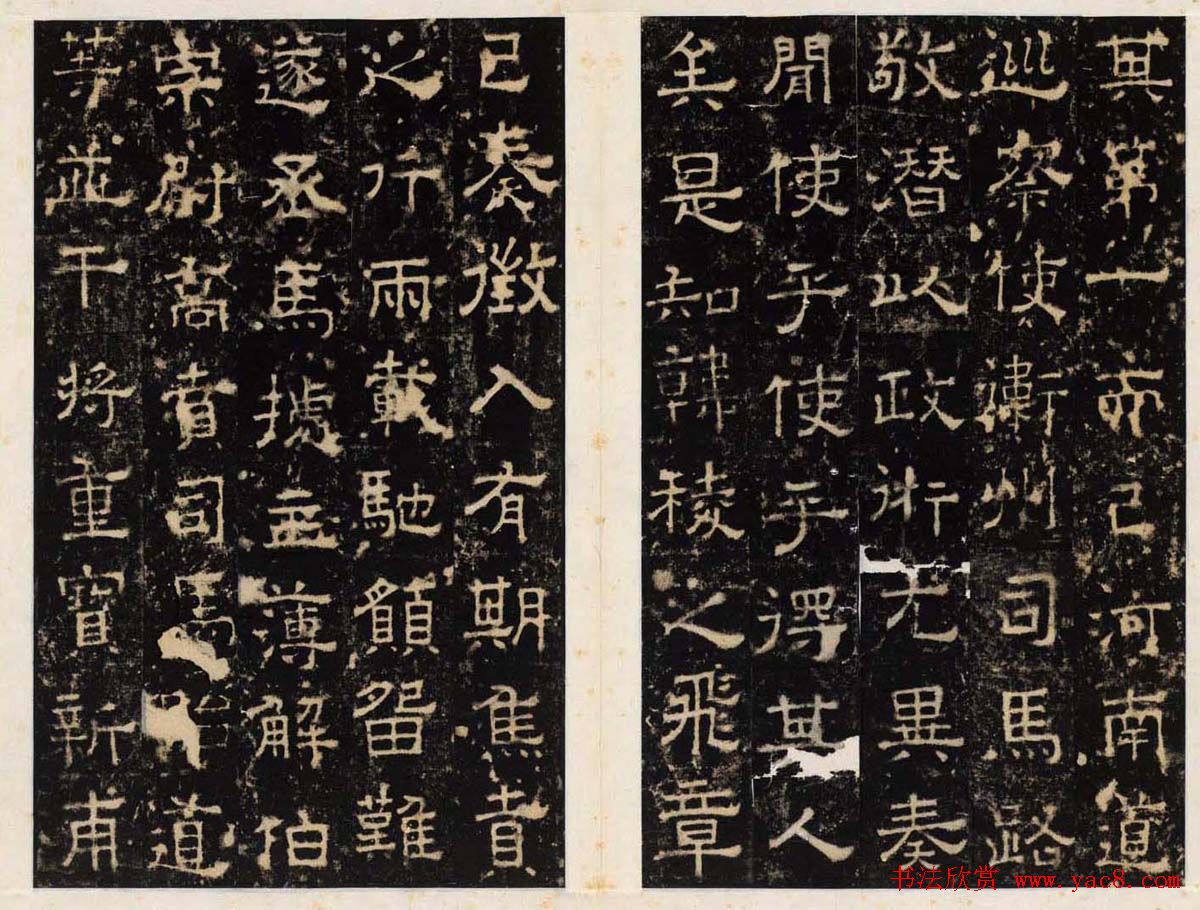 其第一而已河南道
巡察使衛州司馬路
敬潛以政術尤異奏
聞使乎使乎得其人
矣是知韓稜之飛章
已奏徵入有期焦貢
之行雨載馳願留難
遂丞馬攄主薄解伯
崇尉喬賁司馬道
等並干將重寶新甫
书法欣赏 www.yac8.com